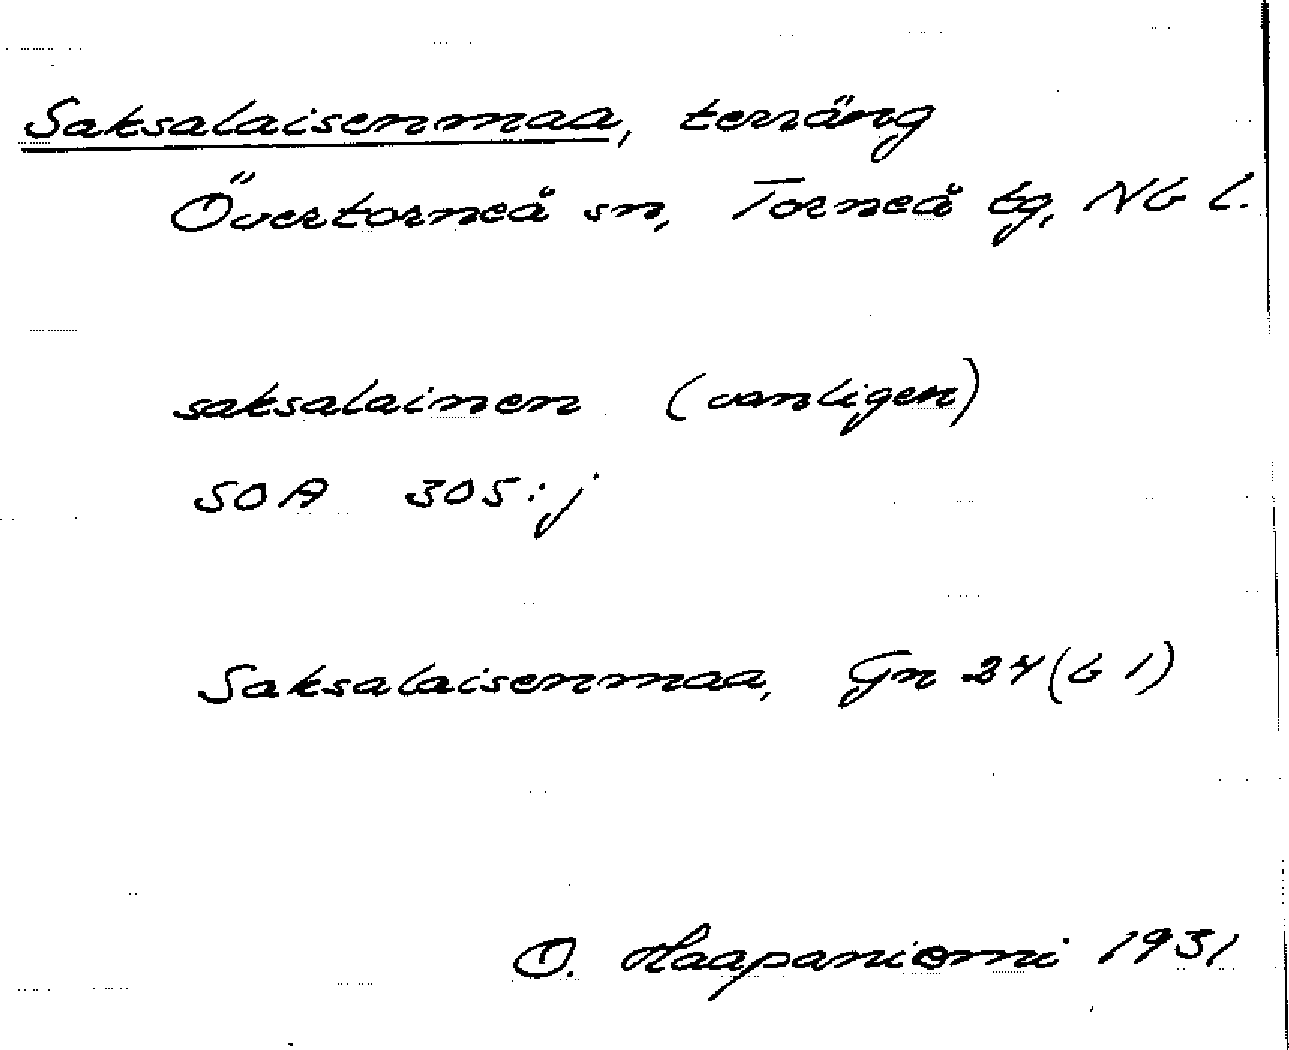 Saksalaisenmaa, terräng
Övertorneå sn, Torneå tg, Nb l.
saksalainen (vanligen)
SOA 305:j
Saksalaisenmaa, Gn 24 (b 1)
O. Haapaniemi 1931